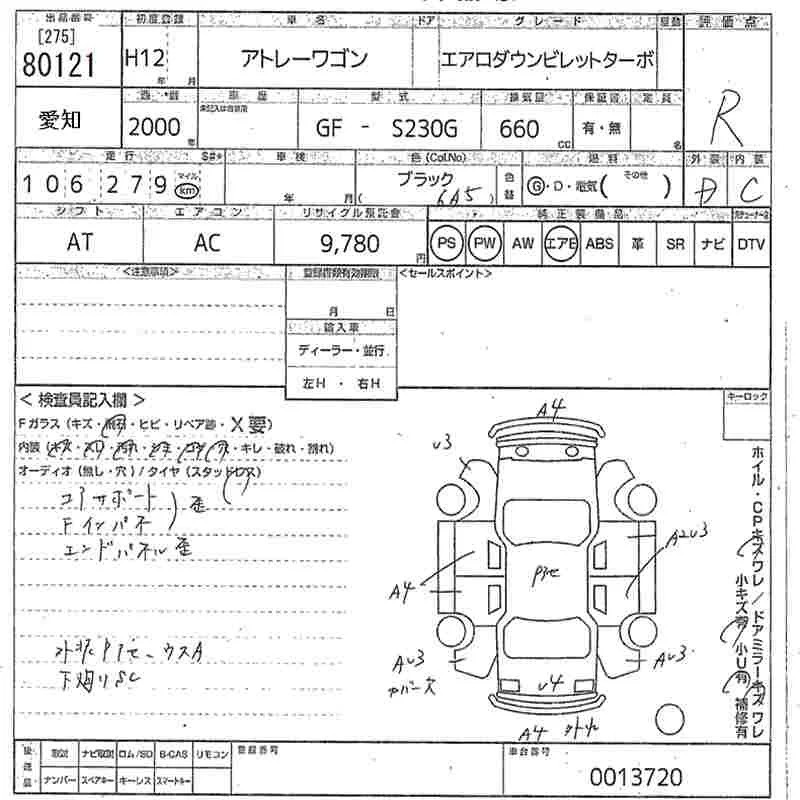 出品番号 初度登録 車名 ドア グレード 評価点
[275]
80121 H12 年 月 アトレーワゴン エアロダウンビレットターボ R
愛知 車歴 型式 排気量 保証書 定員
2000 年 GF - S230G 660 cc 有・無 名
走行 車検 色(Col.No) 燃料 外装 内装
106279 マイル km 年 月 ブラック (6A5) 色替 G・D・電気(その他 ) D C
シフト エアコン リサイクル預託金 純正装備品
AT AC 9,780円 PS PW AW エアB ABS 革 SR ナビ DTV
<注意事項> 登録書類有効期限 <セールスポイント>
月 日
輸入車
ディーラー・並行
左H・右H
<検査員記入欄> キーロック
Fガラス(キズ・飛石・ヒビ・リペア跡・X要)
内装(キズ・スレ・汚れ・シミ・コゲ・穴・キレ・破れ・割れ)
オーディオ(無し・穴)/タイヤ(スタッドレス)
コアサポート
Fインパネ 歪
エンドパネル歪
下廻りSC
A4
U3
A2U3
A4
AU3
カバー欠
AU3
U4
A4
ホイル・CPキズワレ/ドアミラーキズワレ
小キズ有 小U有 補修有
後送品 取説 ナビ取説 ロム/SD B-CAS リモコン 登録番号 車台番号
ナンバー スペアキー キーレス スマートキー 0013720